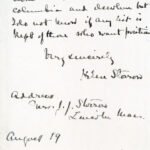 Columbia and decline but
I do not know if any list is
kept of those who want position
Very sincerely
Helen Storrow
Address
Mrs. J. J. Storrow
Lincoln Mass.
August 19